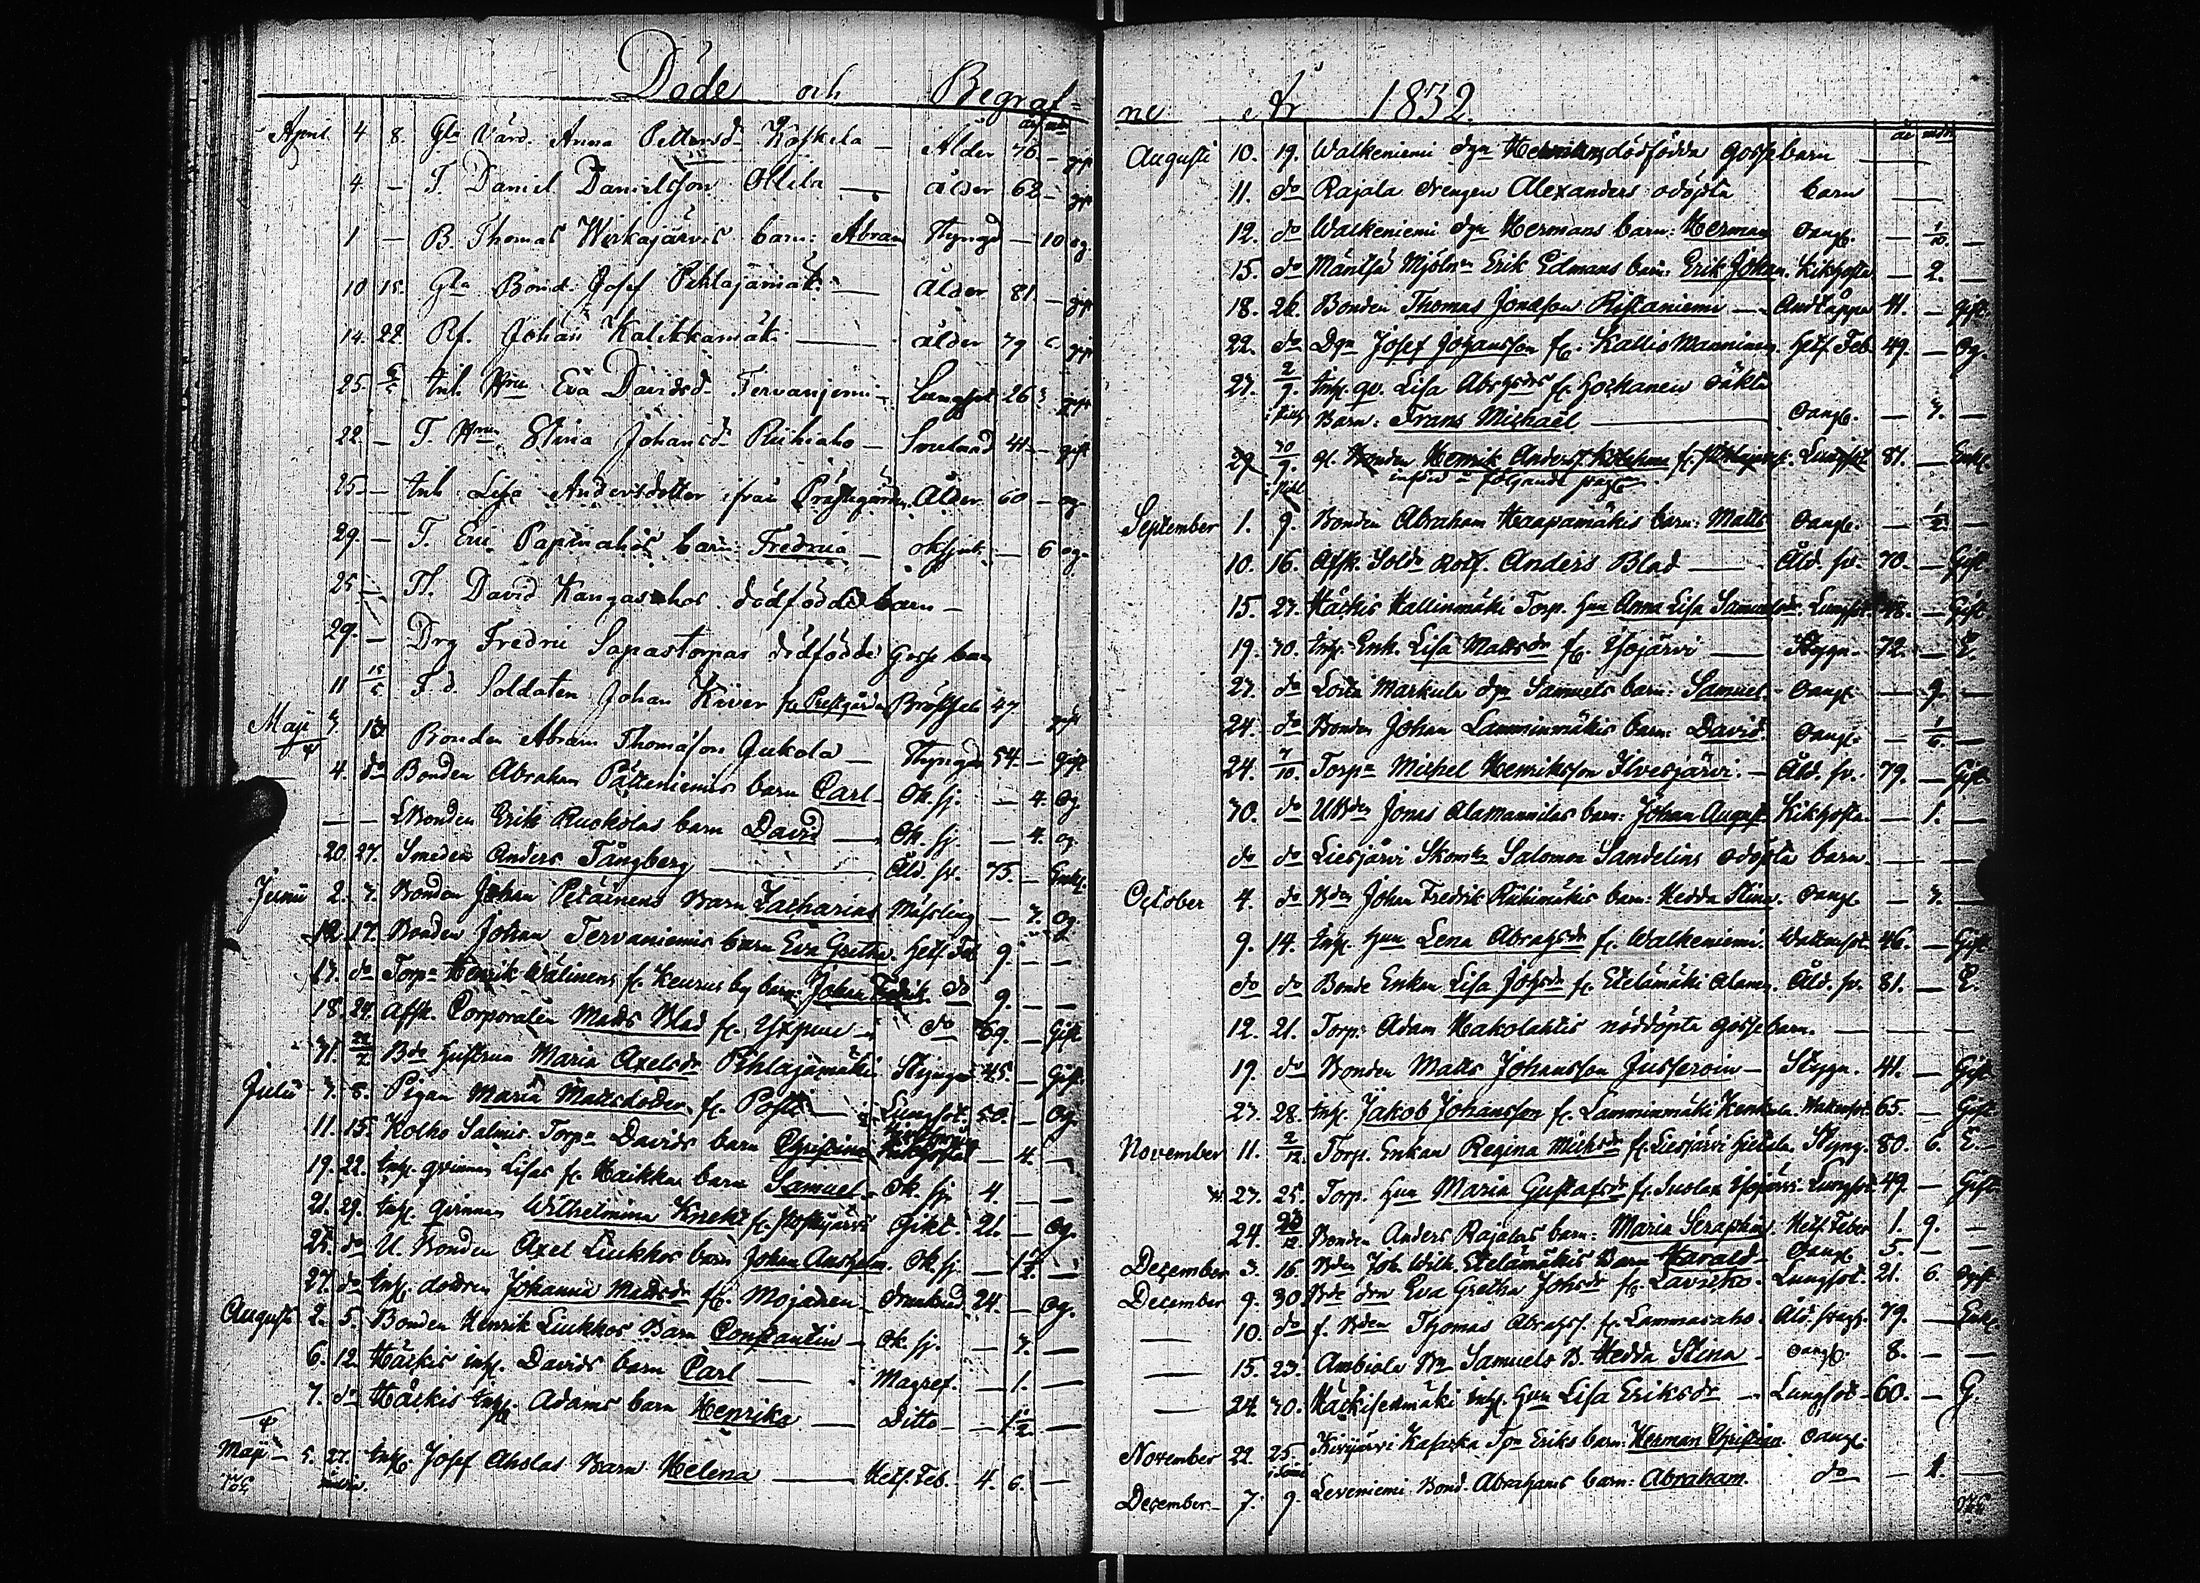 Döde och Begraf=
år mdr
April 4 8. Gla Värd. Anna Pettersd. Koskela — Ålder 76 — gift
4 — T. Daniel Danielsson Ollila — ålder 62 — gift
1 — B. Thomas Wirkajärvis barn: Abram Styngd — 10 og.
10 15. Gla Bond. Josef Pihlajamäk. — ålder 81 — gift
14. 22 Rf. Johan Kalikkamäk. — ålder 79 gift
25. Inh. Hru Eva Davidsd. Tervanjemi — Lungsot 26 3 gift
22 — T. Hru Stina Johansd. Riihiaho — 41 — gift
25 — Inh. Lisa Andersdotter ifrån Prästgården Ålder 60 — og
29 — T. Eric Papinahos barn: Fredrica — — 6 og.
25 — Tl. David Kangasahos dödfödde barn —
29. — Drg Fredric Sapastorpas dödfödde Gosse barn
11 15/5 F. d. Soldaten Johan Kiver fr. Prestgården Bröstsjuk 47 gift
Maji 3 13 Bonden Abram Thomasson Jukola — Styngn 54 — gift
4. do Bonden Abraham Pättiniemis barn Carl — Ok. sj. — 4. og
— — LBonden Erik Ruokolas barn David — Ok. sj. — 4. og
20. 27. Smeden Anders Tångberg — Åld. sv. 75. — Enkl.
Junii 2. 3. Bonden Johan Petäinens Barn Zacharias Mässling — 3. og.
12. 17. Bonden Johan Tervaniemis barn Eva Gretha. Hetf. Feb 9. — —
17. do Torp. Henrik Wälinens fr. Keurus by barn: Johan Fredrik do 9. — —
18. 24. Afsk. Corporalen Matts Blad fr. — do 69. — Gift
31. 22/7 Bde Hustrun Maria Axelsdr Pihlajamäki Styngn 45. — Gift.
Julii 3. 8. Pigan Maria Mattsdoder fr. Posti — Lungsot. 50. — Og.
11. 15. Kolho Salmis Torp. Davids barn Christina Kikhosta — 4. —
19. 22. Inh. qvinnan Lisas fr. Haikka barn Samuel — Ok. sj. 4. — —
21. 29. Inh. qvinnan Wilhelmina Knekt fr. Gikt. 21. — Og.
25. do U. Bonden Axel Liukkos barn Johan Anshelm. Ok. sj. — 1 1/2 —
27. do Inh. dottren Johanna Mattsdr fr. Mojanen — drunknad 24. — Og.
Augusti 2. 5. Bonden Henrik Liukkos Barn Constantin — Ok. sj. — 3. —
6. 12. Häckis inh. Davids barn Carl — Magref. — 1. —
7. do Häckis Inh. Adams barn Henrika — Ditto — 1 1/2 —
Maji 5. 27. Inh. Josef Aholas Barn Helena — Hetf. Feb. 4. 6. —
ne År 1832
år mdr
Augusti 10. 19. Walkeniemi dgn Hermans dödfödda gossebarn —
11. do Rajala drengen Alexanders odöpta barn —
12. do Walkeniemi dgn Hermans barn: Herman Oangf. — 1/10. —
15. do Mäntsä Mjöln. Erik Edmans barn: Erik Johan. Kikhosta — 2. —
18. 26. Bonden Thomas Jonasson Ristaniemi — Andtäppa 41. — Gift.
22. do Dgn Josef Johansson fr. Kallio Manninen Hetf. Feb. 49. — Og.
27. 2/9. Inh. qv. Lisa Abrahsdrs fr. Hoikanen oäkta
Barn: Frans Michaël — Oangf. — 3. —
29 30/9. gl. Bonden Henrik Anders. fr. Lungsot 81. — Enkl.
införd å följande
September 1. 9. Bonden Abraham Haapamäkis barn: Matts Oangf. — 1/2 —
10. 16. Afsk. Solda Rotf. Anders Blad — Åld. sv. 70. — Gift.
15. 23. Häckis Kallinmäki Torp. Hun Anna Lisa Samuelsdr. Lungsot 48. — Gift
19. 30. Inh. Enk. Lisa Mattsdr fr. Isojärvi — Styngn. 72. — E.
23. do Loila Markula dgn Samuels barn: Samuel. Oangf. — 9. —
24. do Bonden Johan Lamminmäkis barn: David. Oangf. — 1/6. —
24. 7/10. Torp. Michel Henriksson Ilvesjärvi. — Åld. sv. 79. — Gift
30. do UBden Jonas Alamannilas barn: Johan August Kikhosta — 1. —
do do Liesjärvi Skom. Salomon Sandelins odöpta barn — — —
October 4. do Bden Johan Fredrik Riihimäkis barn: Hedda Stina. Oangf. — 3. —
9. 14. Inh. Hun Lena Abrahsdr fr. Walkeniemi. Wattusot. 46. — Gift
do do Bonde Enkan Lisa Johsdr fr. Etelämäki Alanen. Åld. sv. 81. — E.
12. 21. Torp. Adam Hakolahtis nöddöpta gossebarn. — — —
19. do Bonden Matts Johansson Jusseroin — Styngn. 41. — Gift
23. 28. Inh. Jakob Johansson fr. Lamminmäki Wattusot. 65. — Gift
November 11. 2/12. Torp. Enkan Regina Michsdr fr. Liesjärvi Styng. 80. 6. E.
23. 25. Torp. Hun Maria Gustafsdr fr. Isojärvi. Lungsot 49 — Gift
24. Bonden Anders Rajalas barn: Maria Seraphia. Hetf. Feber 1. 9. —
December 3. 16. Bden Joh. Wilh. Etelämäkis Barn Harald — Oangf. 5. — —
December 9. 30 Bde drn Eva Gretha Johsdr fr. Lavikko. Lungsot. 21. 6. Ogift
— 10. do f. Bden Thomas Abrahs. fr. Lammasaho. Åld. svagh. 79. — Enkl.
— 15. 23. Ambiala Bn Samuels B. Hedda Stina — Oangf. 8. — —
— 24. 30. Häckisenmäki Inh. Hun Lisa Eriksdr — Lungsot — 60. — G.
November 22 25 Kivijärvi Kasaska Tpn Eriks barn: Herman Christian. Oangf.
December — 7. 9. Leveniemi Bond. Abrahams barn: Abraham. do — 1. —